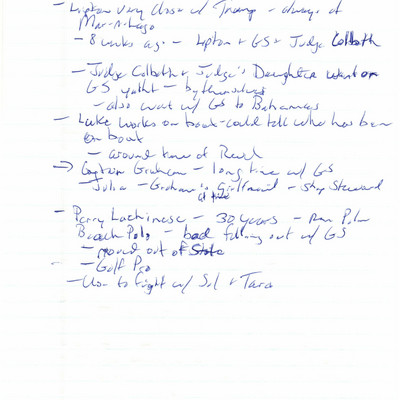 - Lipton very close w/ Trump - always at
Mar-a-Lago
- 8 weeks ago - Lipton + GS + Judge Colbath
- Judge Colbath + Judge's Daughter went on
GS yacht - by themselves
- also went w/ GS to Bahamas
- Luke works on boat - could tell who has been
on boat
- around time of
→ Captain Graham - long time w/ GS
- Julia - Graham's Girlfriend - Ship Steward
- Perry - 30 years - Ran Palm
Beach Polo - bad falling out w/ GS
- moved out of State
- Golf Pro
- to fight w/ Sol + Tara